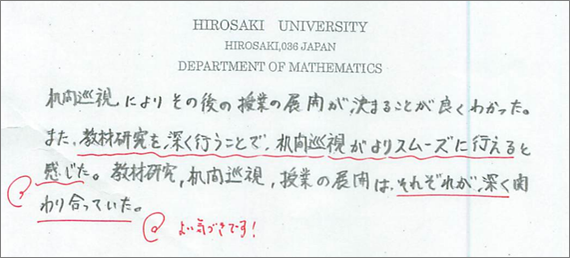 HIROSAKI UNIVERSITY
HIROSAKI,036 JAPAN
DEPARTMENT OF MATHEMATICS
机間巡視によりその後の授業の展開が決まることが良くわかった。
また,教材研究を深く行うことで,机間巡視がよりスムーズに行えると
感じた。教材研究,机間巡視,授業の展開は,それぞれが深く関
わり合っていた。
よい気づきです!